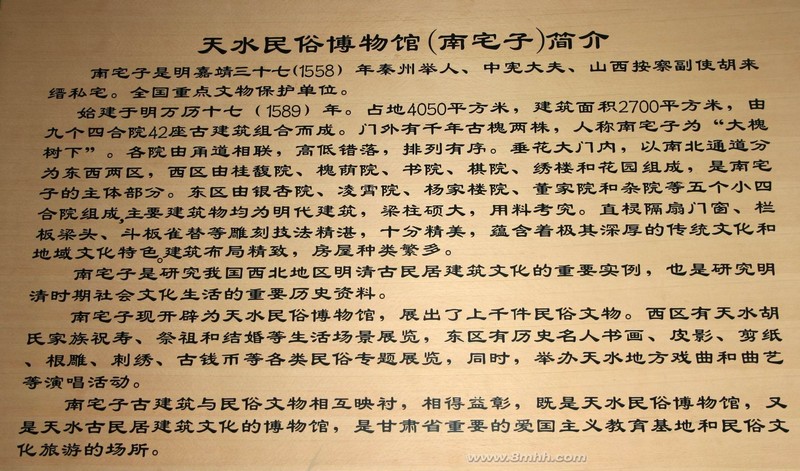 天水民俗博物馆(南宅子)简介
南宅子是明嘉靖三十七(1558) 年秦州举人、中宪大夫、山西按察副使胡来
缙私宅。全国重点文物保护单位。
始建于明万历十七 (1589) 年。占地4050平方米，建筑面积2700平方米，由
九个四合院42座古建筑组合而成。门外有千年古槐两株，人称南宅子为“大槐
树下”。各院由甬道相联，高低错落，排列有序。垂花大门内，以南北通道分
为东西两区，西区由桂馥院、槐荫院、书院、棋院、绣楼和花园组成，是南宅
子的主体部分。东区由银杏院、凌霄院、杨家楼院、董家院和杂院等五个小四
合院组成，主要建筑物均为明代建筑，梁柱硕大，用料考究。直棂隔扇门窗、栏
板梁头、斗板雀替等雕刻技法精湛，十分精美，蕴含着极其深厚的传统文化和
地域文化特色。建筑布局精致，房屋种类繁多。
南宅子是研究我国西北地区明清古民居建筑文化的重要实例，也是研究明
清时期社会文化生活的重要历史资料。
南宅子现开辟为天水民俗博物馆，展出了上千件民俗文物。西区有天水胡
氏家族祝寿、祭祖和结婚等生活场景展览，东区有历史名人书画、皮影、剪纸
、根雕、刺绣、古钱币等各类民俗专题展览，同时，举办天水地方戏曲和曲艺
等演唱活动。
南宅子古建筑与民俗文物相互映衬，相得益彰，既是天水民俗博物馆，又
是天水古民居建筑文化的博物馆，是甘肃省重要的爱国主义教育基地和民俗文
化旅游的场所。
www.8mhh.com